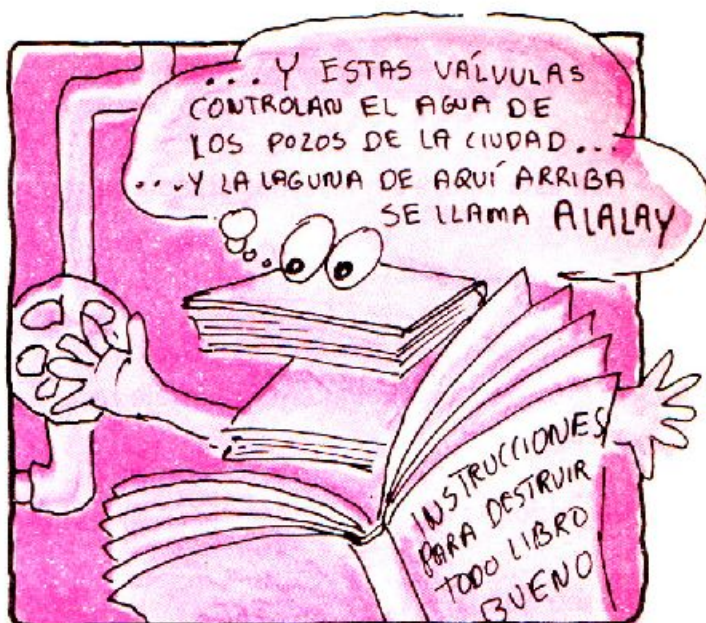 ... Y ESTAS VÁLVULAS
CONTROLAN EL AGUA DE
LOS POZOS DE LA CIUDAD...
...Y LA LAGUNA DE AQUÍ ARRIBA
SE LLAMA ALALAY
INSTRUCCIONES
PARA DESTRUIR
TODO LIBRO
BUENO